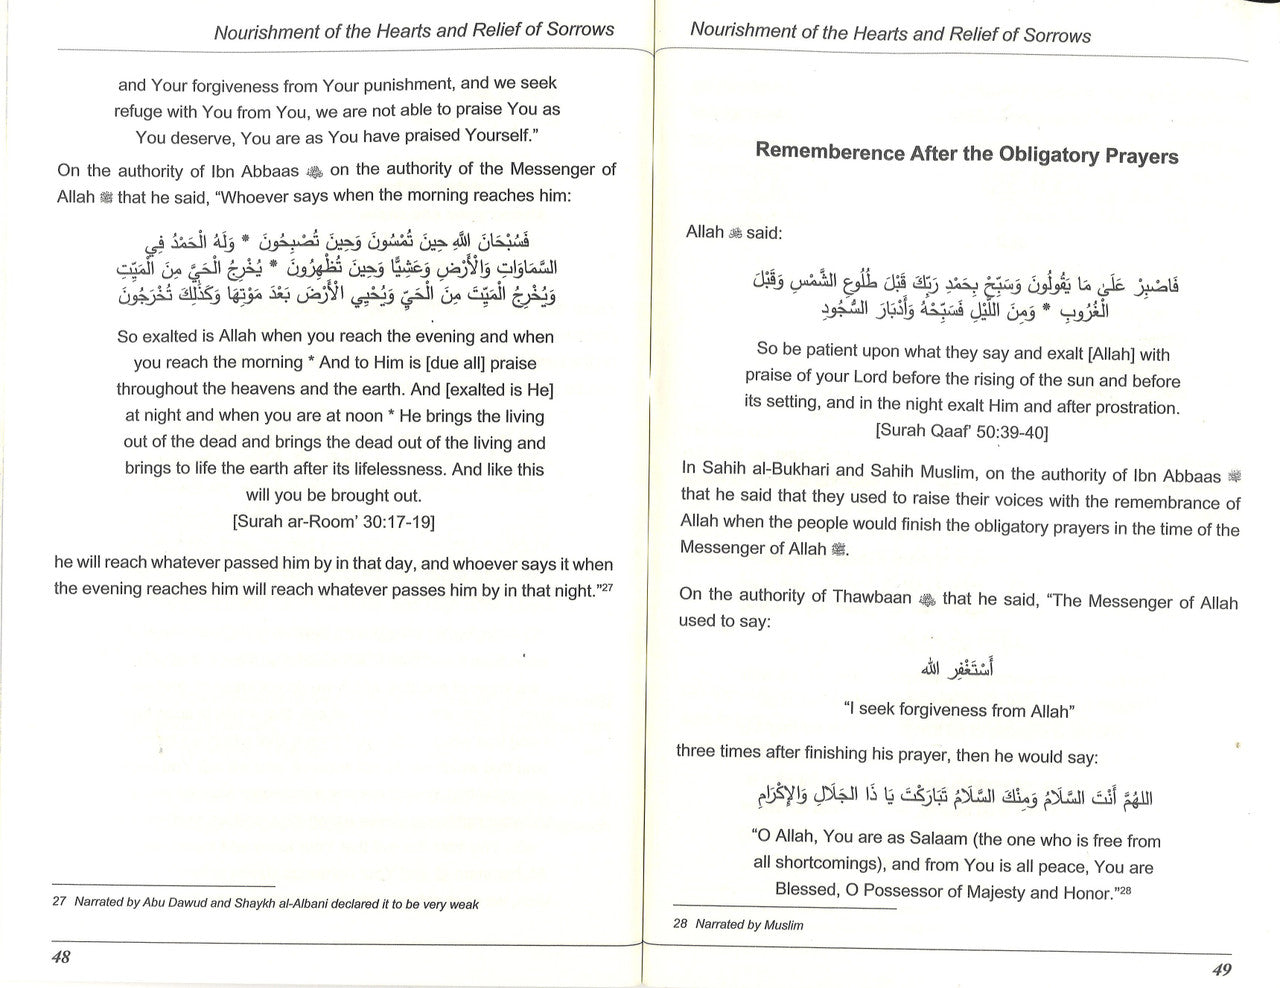 Nourishment of the Hearts and Relief of Sorrows
and Your forgiveness from Your punishment, and we seek
refuge with You from You, we are not able to praise You as
You deserve, You are as You have praised Yourself.”
On the authority of Ibn Abbaas on the authority of the Messenger of
Allah ﷺ that he said, “Whoever says when the morning reaches him:
فَسُبْحَانَ اللَّهِ حِينَ تُمْسُونَ وَحِينَ تُصْبِحُونَ * وَلَهُ الْحَمْدُ فِي
السَّمَاوَاتِ وَالْأَرْضِ وَعَشِيًّا وَحِينَ تُظْهِرُونَ * يُخْرِجُ الْحَيَّ مِنَ الْمَيِّتِ
وَيُخْرِجُ الْمَيِّتَ مِنَ الْحَيِّ وَيُحْيِي الْأَرْضَ بَعْدَ مَوْتِهَا وَكَذَٰلِكَ تُخْرَجُونَ
So exalted is Allah when you reach the evening and when
you reach the morning * And to Him is [due all] praise
throughout the heavens and the earth. And [exalted is He]
at night and when you are at noon * He brings the living
out of the dead and brings the dead out of the living and
brings to life the earth after its lifelessness. And like this
will you be brought out.
[Surah ar-Room’ 30:17-19]
he will reach whatever passed him by in that day, and whoever says it when
the evening reaches him will reach whatever passes him by in that night.”27
27 Narrated by Abu Dawud and Shaykh al-Albani declared it to be very weak
48
Nourishment of the Hearts and Relief of Sorrows
Rememberence After the Obligatory Prayers
Allah said:
فَاصْبِرْ عَلَىٰ مَا يَقُولُونَ وَسَبِّحْ بِحَمْدِ رَبِّكَ قَبْلَ طُلُوعِ الشَّمْسِ وَقَبْلَ
الْغُرُوبِ * وَمِنَ اللَّيْلِ فَسَبِّحْهُ وَأَدْبَارَ السُّجُودِ
So be patient upon what they say and exalt [Allah] with
praise of your Lord before the rising of the sun and before
its setting, and in the night exalt Him and after prostration.
[Surah Qaaf’ 50:39-40]
In Sahih al-Bukhari and Sahih Muslim, on the authority of Ibn Abbaas
that he said that they used to raise their voices with the remembrance of
Allah when the people would finish the obligatory prayers in the time of the
Messenger of Allah ﷺ.
On the authority of Thawbaan that he said, “The Messenger of Allah
used to say:
أَسْتَغْفِر الله
“I seek forgiveness from Allah”
three times after finishing his prayer, then he would say:
اللهُمَّ أَنْتَ السَّلَامُ وَمِنْكَ السَّلَامُ تَبَارَكْتَ يَا ذَا الجَلَالِ وَالإِكْرَامِ
“O Allah, You are as Salaam (the one who is free from
all shortcomings), and from You is all peace, You are
Blessed, O Possessor of Majesty and Honor.”28
28 Narrated by Muslim
49